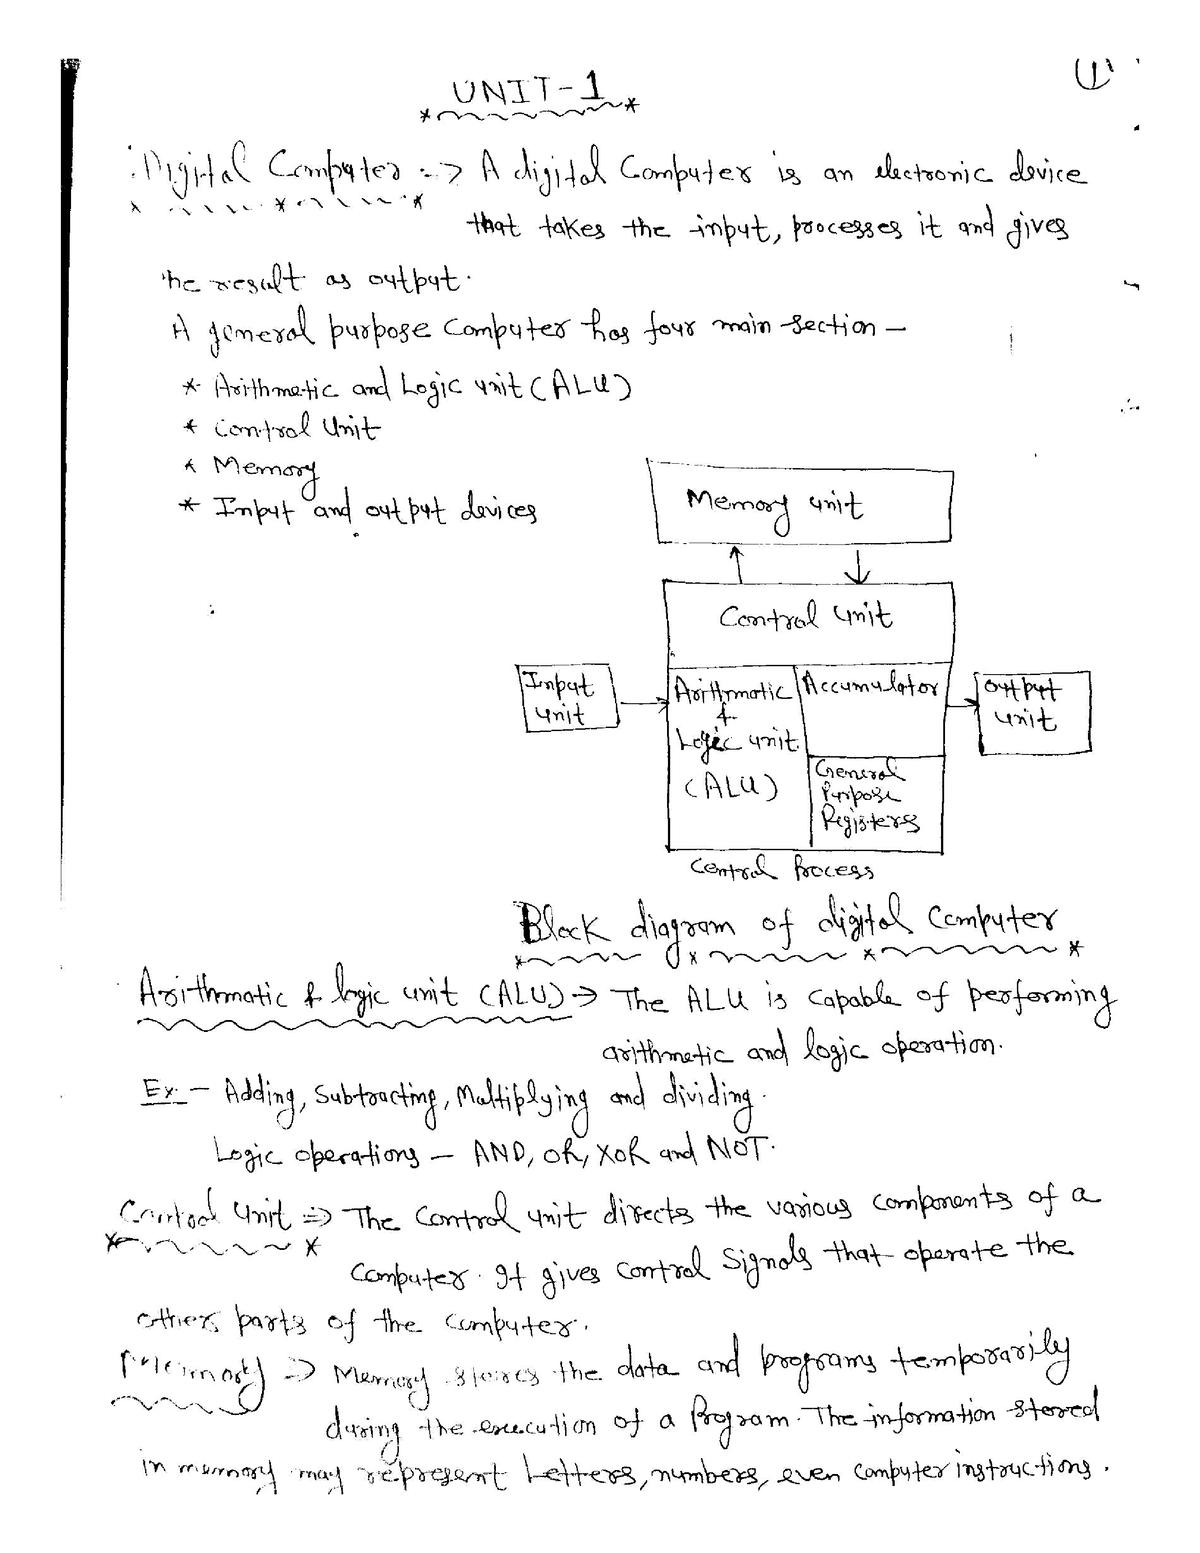 1
UNIT-1
Digital Computer :-> A digital Computer is an electronic device
that takes the input, processes it and gives
he result as output.
A general purpose computer has four main section -
* Arithmetic and Logic unit (ALU)
* Control Unit
* Memory
* Input and output devices
Memory unit
Control unit
Input
unit
Arithmatic
&
Logic unit.
(ALU)
Accumulator
General
Purpose
Registers
output
unit
Control Process
Block diagram of digital Computer
Arithmatic & logic unit (ALU) -> The ALU is capable of performing
arithmetic and logic operation.
Ex:- Adding, Subtracting, Multiplying and dividing.
Logic operations - AND, OR, XOR and NOT.
Control Unit => The Control unit directs the various components of a
computer. It gives control Signals that operate the
others parts of the computer.
Memory => Memory stores the data and programs temporarily
during the execution of a Program. The information stored
in memory may represent Letters, numbers, even computer instructions.